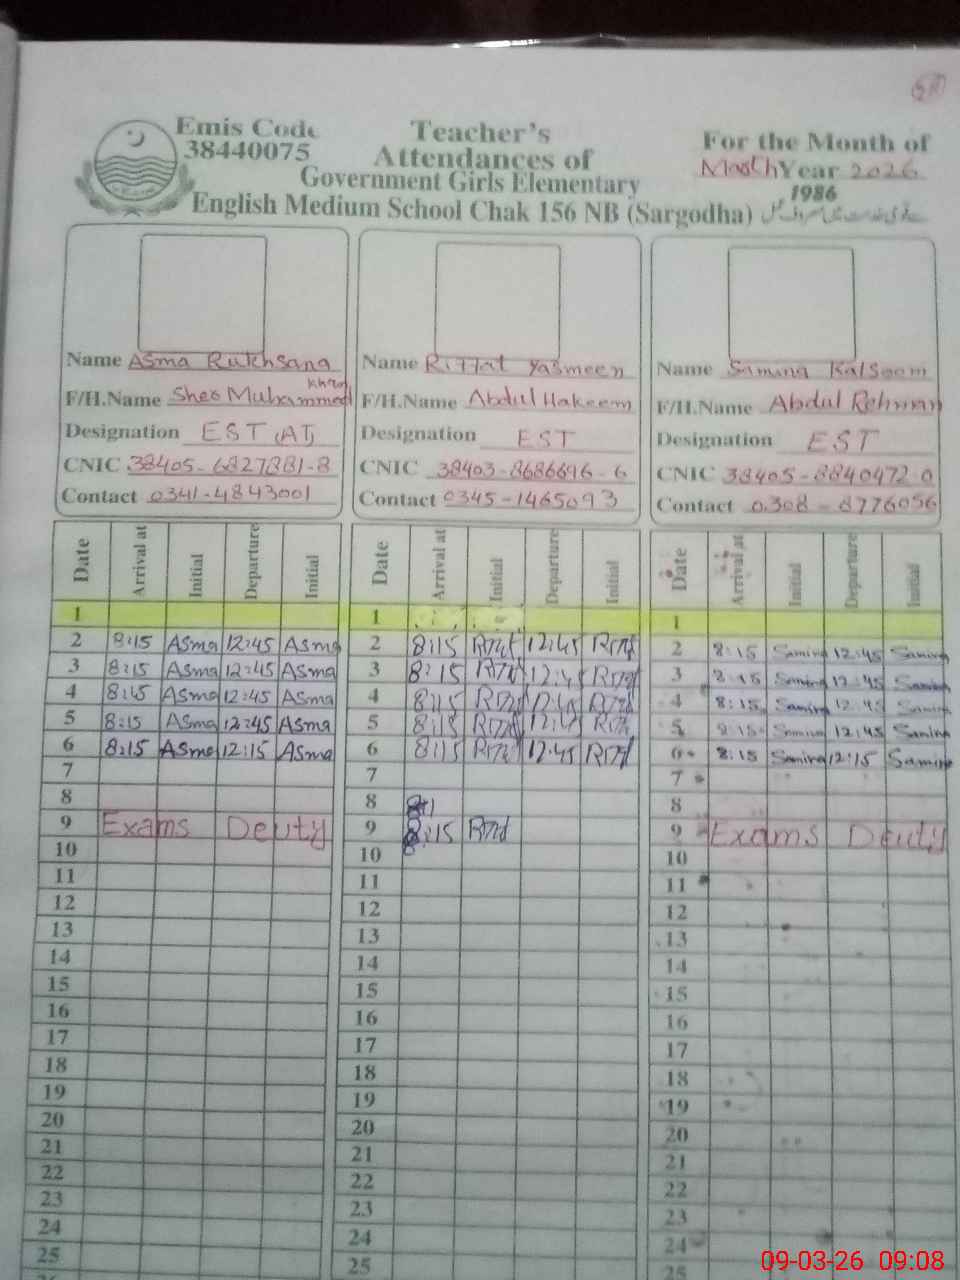 Emis Code
38440075
Teacher's
Attendances of
Government Girls Elementary
English Medium School Chak 156 NB (Sargodha)
For the Month of
March Year 2026
1986
Name Asma Rukhsana
F/H.Name Sher Muhammad Khan
Designation EST (AT)
CNIC 38405-6827881-8
Contact 0341-4843001
Name Riffat Yasmeen
F/H.Name Abdul Hakeem
Designation EST
CNIC 38403-8686696-6
Contact 0345-1465093
Name Samina Kalsoom
F/H.Name Abdul Rehman
Designation EST
CNIC 38405-8840472-0
Contact 0308-8776056
Date Arrival at Initial Departure Initial
1
2 8:15 Asma 12:45 Asma
3 8:15 Asma 12:45 Asma
4 8:15 Asma 12:45 Asma
5 8:15 Asma 12:45 Asma
6 8:15 Asma 12:15 Asma
7
8
9 Exams Deuty
10
11
12
13
14
15
16
17
18
19
20
21
22
23
24
25
Date Arrival at Initial Departure Initial
1
2 8:15 12:45
3 8:15 12:45
4 8:15 12:45
5 8:15 12:45
6 8:15 12:45
7
8
9 8:15
10
11
12
13
14
15
16
17
18
19
20
21
22
23
24
25
Date Arrival at Initial Departure Initial
1
2 8:15 Samina 12:45 Samina
3 8:15 Samina 12:45 Samina
4 8:15 Samina 12:45 Samina
5 8:15 Samina 12:45 Samina
6 8:15 Samina 12:15 Samina
7
8
9 Exams Deuty
10
11
12
13
14
15
16
17
18
19
20
21
22
23
24
25
09-03-26 09:08